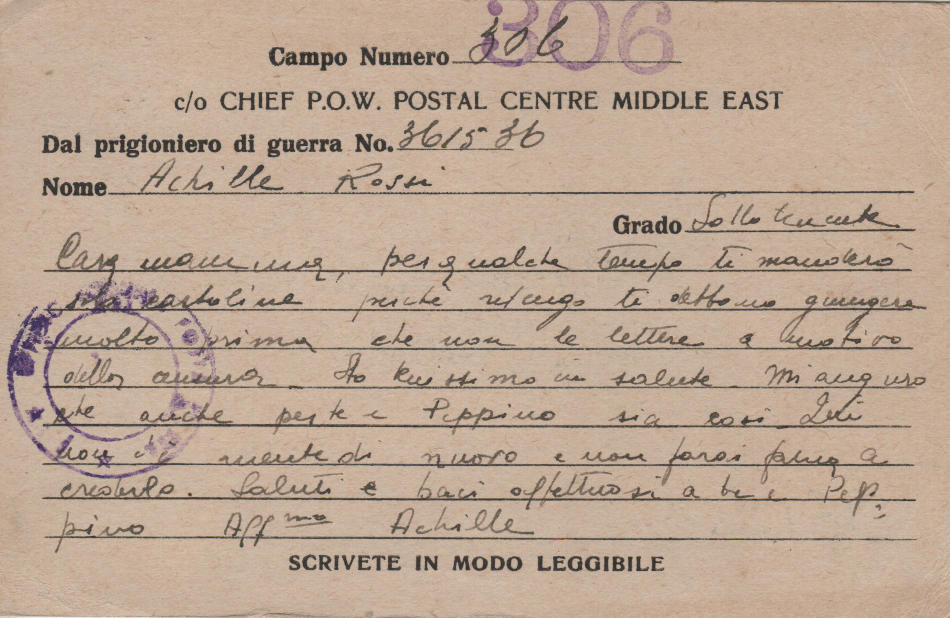 306
Campo Numero 306
c/o CHIEF P.O.W. POSTAL CENTRE MIDDLE EAST
Dal prigioniero di guerra No. 361536
Nome Achille Rossi
Grado Sottotenente
Cara mamma, per qualche tempo ti manderò
solo cartoline perché ritengo ti debbano giungere
molto prima che non le lettere a motivo
della censura. Sto benissimo in salute. Mi auguro
che anche per te e Peppino sia così. Qui
non c'è niente di nuovo e non farai fatica a
crederlo. Saluti e baci affettuosi a te e Pep-
pino Aff.mo Achille
SCRIVETE IN MODO LEGGIBILE